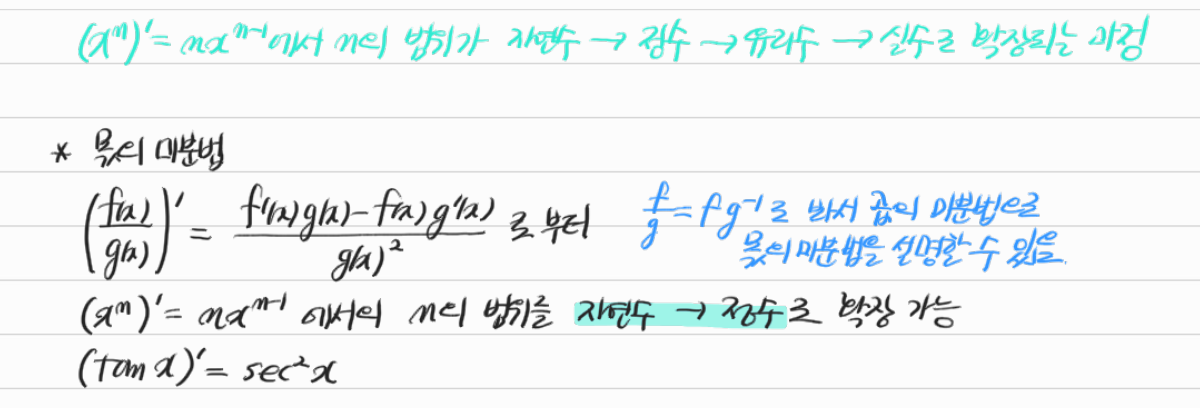 (xⁿ)' = nxⁿ⁻¹에서 n의 범위가 자연수 → 정수 → 유리수 → 실수로 확장되는 과정
* 몫의 미분법
(f(x)/g(x))' = (f'(x)g(x)-f(x)g'(x))/g(x)² 로부터
f/g = fg⁻¹로 봐서 곱의 미분법으로
몫의 미분법을 설명할 수 있음.
(xⁿ)' = nxⁿ⁻¹ 에서의 n의 범위를 자연수 → 정수로 확장 가능
(tan x)' = sec²x